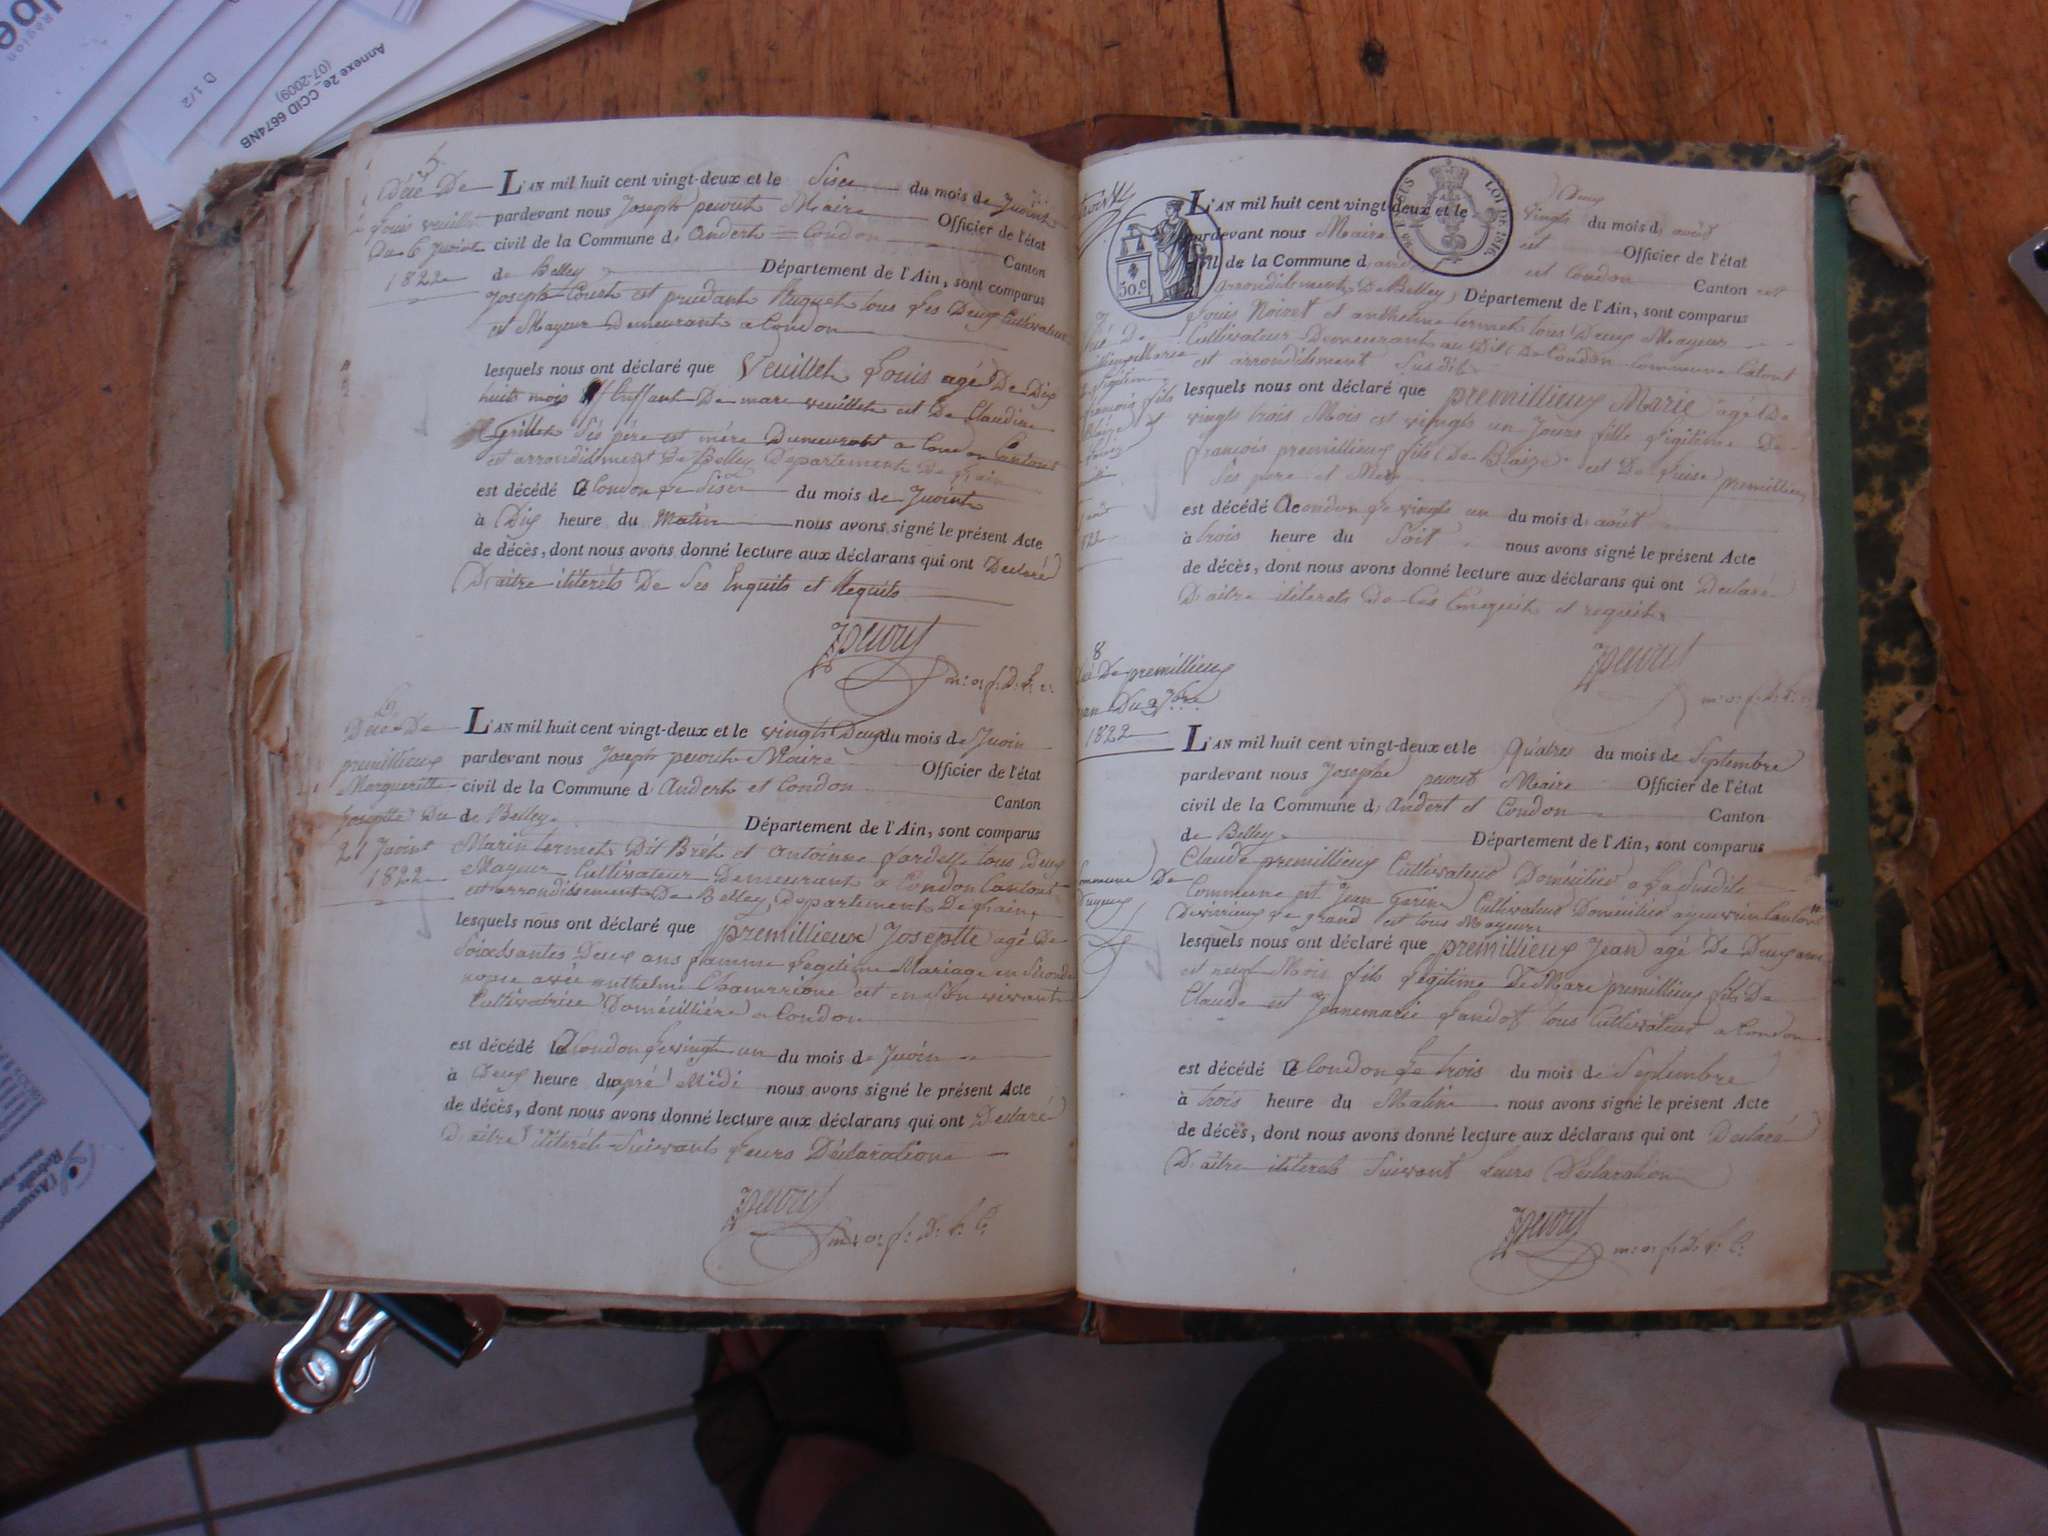 Annexe 2e CCID 6674NB
(07-2009)
D 1/2
5
Décé De
Louis veuillet
Du 6 Juoint
1822
L'AN mil huit cent vingt-deux et le Sisce du mois de Juoint
pardevant nous Joseph peuvrit Maire Officier de l'état
civil de la Commune d Andert Condon Canton
de Belley Département de l'Ain, sont comparus
Joseph Court et prudant Huguet tous Les Deux Cultivateur
et Mayeur Demeurant a Condon
lesquels nous ont déclaré que Veuillet Louis agé De Dix
huits mois Enffant De marc veuillet et De Claudine
Grillet Sés pére et mére Demeurant a Condon Cantont
et arrondisement De Belley Département De Lain
est décédé a Condon Le Sisce du mois de Juoint
à Dix heure du Matin nous avons signé le présent Acte
de décès, dont nous avons donné lecture aux déclarans qui ont Declaré
D'aitre ititerèts De Ses Enquits et Requits
m: o: f: D: l: c:
6
Décé De
premillieux
Margueritte
Joseptte Du
21 Juoint
1822
L'AN mil huit cent vingt-deux et le vingts Deux du mois de Juoin
pardevant nous Joseph peuvrit Maire Officier de l'état
civil de la Commune d Andert et Condon Canton
de Belley Département de l'Ain, sont comparus
Marin termet Dit Brét et Antoinne Lardet tous Deux
Mayeur Cultivateur Demeurant a Condon Cantont
et arrondissement De Belley, Département De Lain,
lesquels nous ont déclaré que premillieux Joseptte agé De
Soixssantes Deux ans famme Legitime Mariage en Seconde
nopce avéc anthelme Chamreione et en Son vivant
Cultivatrice Domécilliére a Condon
est décédé a Condon Le vingt un du mois de Juoin
à Deux heure du apré Midi nous avons signé le présent Acte
de décès, dont nous avons donné lecture aux déclarans qui ont Declaré
D'aitre ititeréts Suivant Leurs Déclaration
m: o: f: D: l: C:
50.c
LOI DE 1816
L'AN mil huit cent vingt-deux et le vingts Deux du mois d août
pardevant nous Maire Officier de l'état
civil de la Commune d and et Condon Canton et
arrondisement De Belley, Département de l'Ain, sont comparus
Louis Noiret et anthelme termet tous Deux Mayeur
Cultivateur Demeurant au Dit De Condon Commune Catont
et arrondisement Susdit
lesquels nous ont déclaré que premillieux Marie agé De
vingts trois Mois et vingts un Jours fille Légitime De
françois premillieux fils De Blaize et De Luise premillieux
Sés pere et Mer
est décédé a Condon Le vingts un du mois d août
à trois heure du Soit nous avons signé le présent Acte
de décès, dont nous avons donné lecture aux déclarans qui ont Declaré
D'aitre ititerets De Ces Enequit et requit
m: o: f: D: l: c:
8
De premillieux
Du 3 7bre
1822
L'AN mil huit cent vingt-deux et le Quatres du mois de Septembre
pardevant nous Josephe peuvrit Maire Officier de l'état
civil de la Commune d Andert et Condon Canton
de Belley Département de l'Ain, sont comparus
Claude premillieux Cultivateur Domécilié a La Susdite
Commune et Jean Gerin Cultivateur Domécilié
De virieux Le grand et tous Mayeurs
lesquels nous ont déclaré que premillieux Jean agé De Deux ans
et neuf Mois fils Légitime De Marc premillieux fils De
Claude et Jeannemarie Landot tous Cultivateur a Condon
est décédé a Condon Le trois du mois de Septembre
à trois heure du Matin nous avons signé le présent Acte
de décès, dont nous avons donné lecture aux déclarans qui ont Declaré
D'aitre ititerets Suivant Leurs Déclaration
m: o: f: D: l: C: